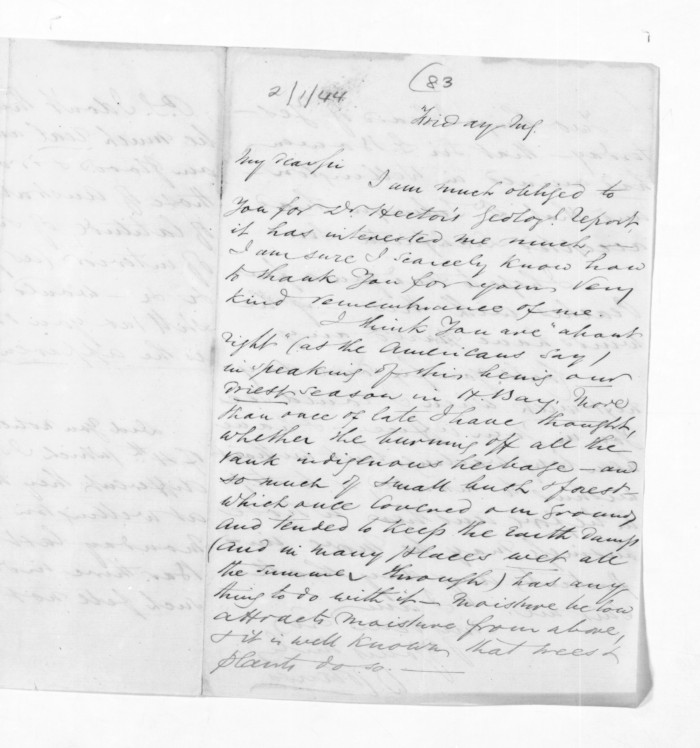 (83
2/1/44
Friday Mg.
My dear Sir
I am much obliged to
You for Dr. Hector's Geolog! Report
it has interested me much.
I am sure I scarcely know how
to thank You for your very
kind remembrance of me.
I think You are "about
right" (as the Americans say)
in speaking of this being our
driest season in H. Bay. More
than once of late I have thought,
whether the burning off all the
rank indigenous herbage – and
so much of small bush & forest
which once covered our ground,
and tended to keep the Earth damp
(and in many places wet all
the summer through) has any
thing to do with it – Moisture below
attracts moisture from above,
& it is well known that trees &
plants do so. —